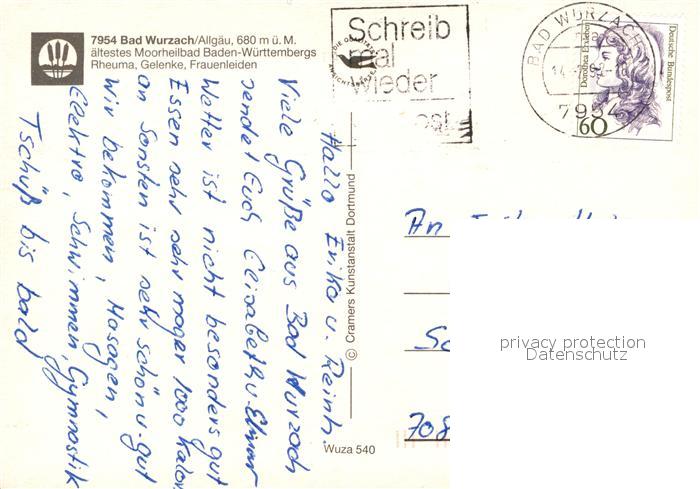 7954 Bad Wurzach/Allgäu, 680 m ü. M.
ältestes Moorheilbad Baden-Württembergs
Rheuma, Gelenke, Frauenleiden
Schreib
mal
wieder
Post
BAD WURZACH
7954
Dorothea Erxleben
Deutsche Bundespost
60
Hallo Erika u. Reinh.
Viele Grüße aus Bad Wurzach
sendet Euch Elisabeth u. Elmar
Wetter ist nicht besonders gut
Essen sehr sehr mager 1000 Kalor.
an sonsten ist sehr schön u. gut
Wir bekommen, Masagen,
Elektro, Schwimmen, Gymnastik
Tschüß bis bald
© Cramers Kunstanstalt Dortmund
Wuza 540
An
708
privacy protection
Datenschutz